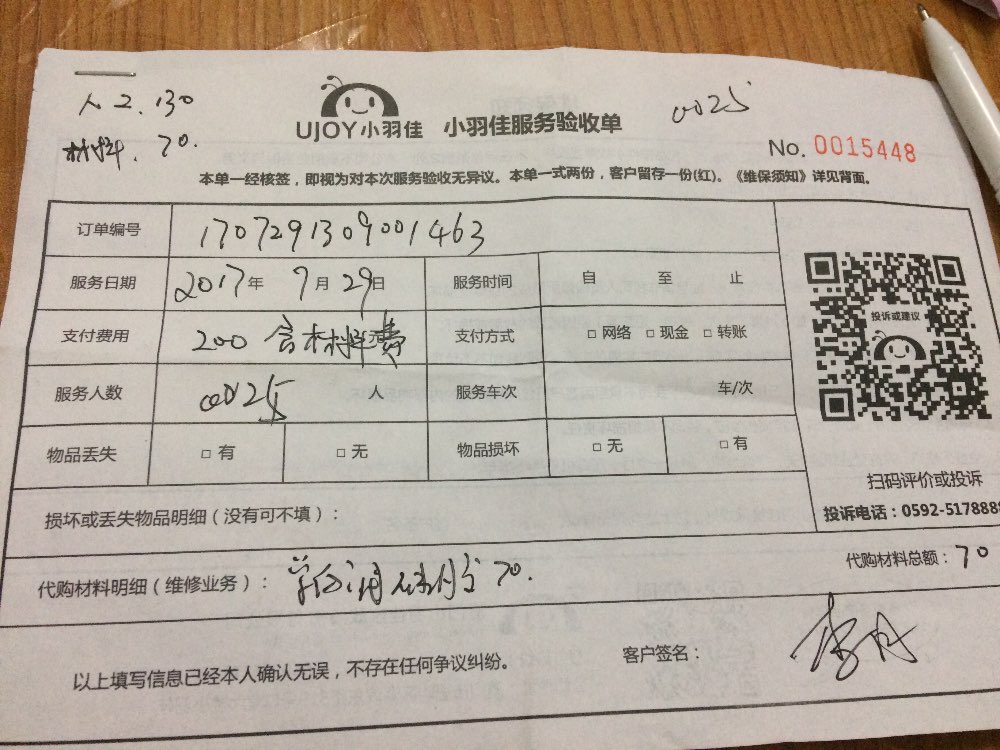 人工.130
材料.70.
0025
UJOY小羽佳 小羽佳服务验收单
No. 0015448
本单一经核签，即视为对本次服务验收无异议。本单一式两份，客户留存一份(红)。《维保须知》详见背面。
订单编号 1707291309001463
服务日期 2017年 7月 29日 服务时间 自 至 止
支付费用 200 含材料费 支付方式 □ 网络 □ 现金 □ 转账
服务人数 0025 人 服务车次 车/次
物品丢失 □ 有 □ 无 物品损坏 □ 无 □ 有
投诉或建议
扫码评价或投诉
投诉电话：0592-5178888
损坏或丢失物品明细（没有可不填）：
代购材料明细（维修业务）： 70.
代购材料总额：70
以上填写信息已经本人确认无误，不存在任何争议纠纷。
客户签名：